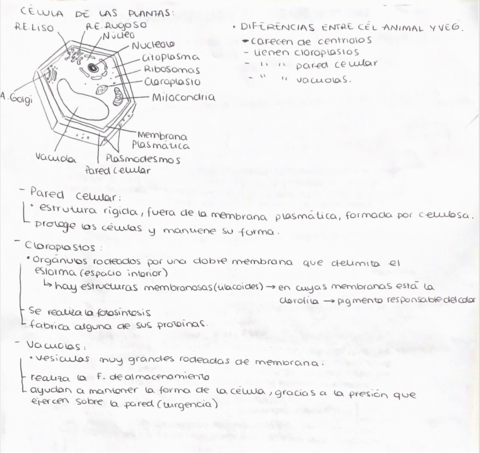 CÉLULA DE LAS PLANTAS:
R.E. LISO
R.E. RUGOSO
Núcleo
Nucleolo
Citoplasma
Ribosomas
Cloroplasto
Mitocondria
A. Golgi
Membrana
Plasmática
Vacuola
Plasmodesmos
Pared celular
• DIFERENCIAS ENTRE CÉL ANIMAL Y VEG.
- carecen de centriolos
- tienen cloroplastos
- " " pared celular
- " " vacuolas.
- Pared celular:
• estrutura rigida, fuera de la membrana plasmática, formada por celulosa.
protege las células y mantiene su forma.
- Cloroplastos:
• Orgánulos rodeados por una doble membrana que delimita el
estorma (espacio interior)
↳ hay estructuras membranosas (tilacoides) → en cuyas membranas está la
clorofila → pigmento responsable del color
Se realiza la fotosíntosis
fabrica alguna de sus proteínas.
- Vacuolas:
• vesículas muy grandes rodeadas de membrana.
realiza la F. de almacenamiento
ayudan a mantener la forma de la célula, gracias a la presión que
ejercen sobre la pared (turgencia)